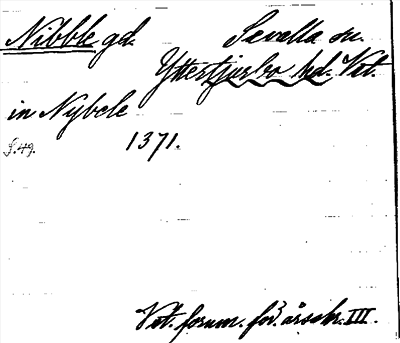 Nibble gd. Sevalla sn.
Yttertjurbo hd. Vst.
in Nybele 1371.
S.49.
Vst. fornm. för. årsskr. III.